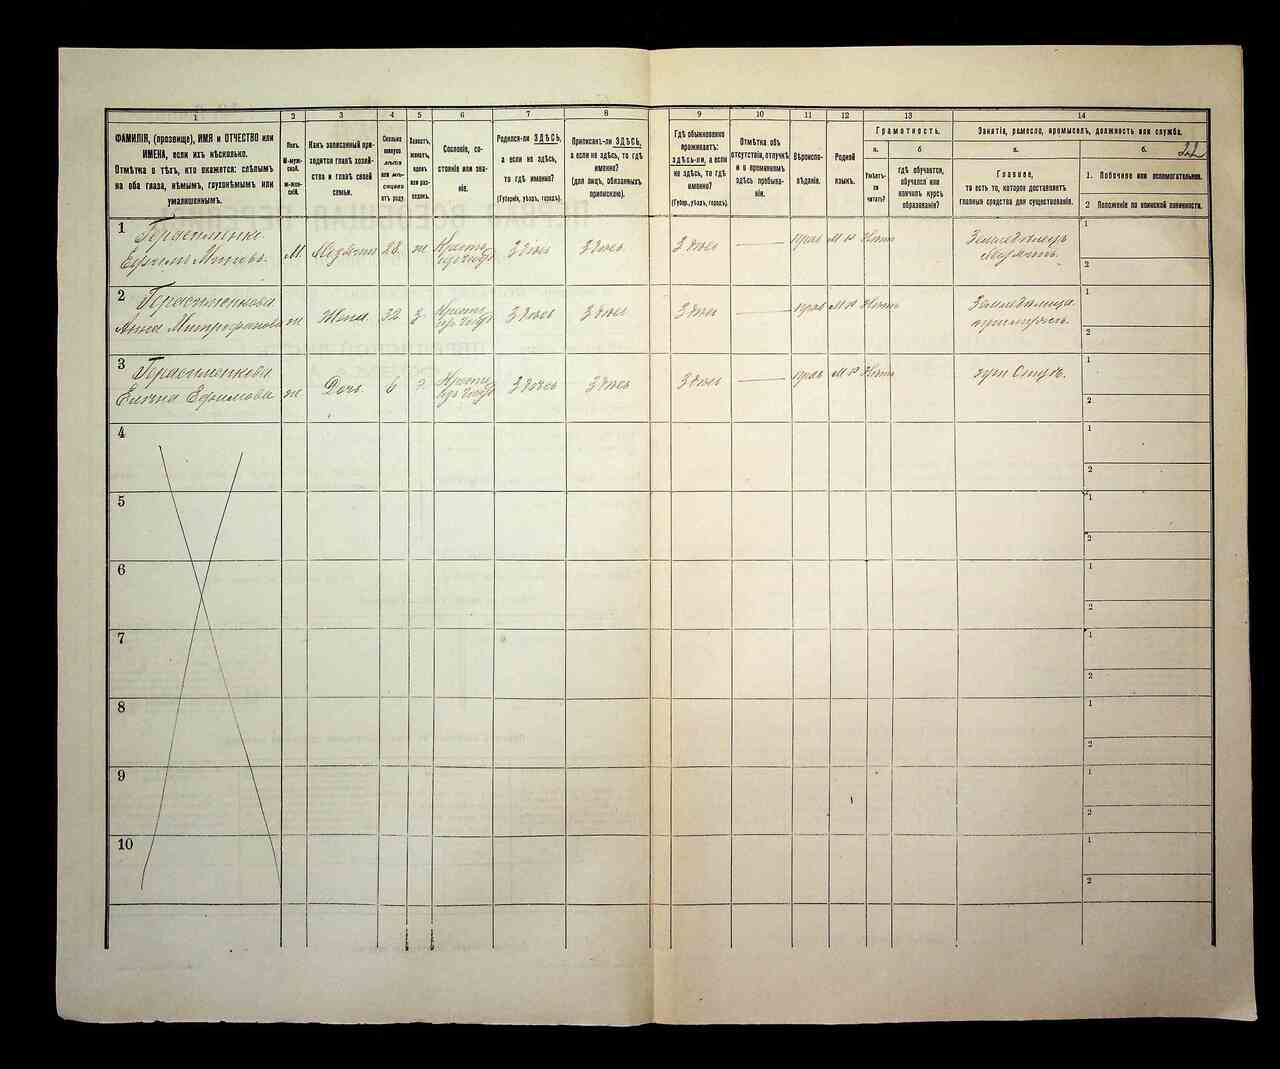 1
2
3
4
5
6
7
8
9
10
11
12
13
14
ФАМИЛІЯ, (прозвище), ИМЯ и ОТЧЕСТВО или
ИМЕНА, если ихъ нѣсколько.
Отмѣтка о тѣхъ, кто окажется: слѣпымъ
на оба глаза, нѣмымъ, глухонѣмымъ или
умалишеннымъ.
Полъ.
М-муж-
ской.
ж-жен-
скій.
Какъ записанный при-
ходится главѣ хозяй-
ства и главѣ своей
семьи.
Сколько
минуло
лѣтъ
или мѣ-
сяцевъ
отъ роду.
Холостъ,
женатъ,
вдовъ
или раз-
веденъ.
Сословіе, со-
стояніе или зва-
ніе.
Родился-ли ЗДѢСЬ,
а если не здѣсь,
то гдѣ именно?
(Губернія, уѣздъ, городъ).
Приписанъ-ли ЗДѢСЬ,
а если не здѣсь, то гдѣ
именно?
(для лицъ, обязанныхъ
припискою).
Гдѣ обыкновенно
проживаетъ:
здѣсь-ли, а если
не здѣсь, то гдѣ
именно?
(Губер., уѣздъ, городъ).
Отмѣтка объ
отсутствіи, отлучкѣ
и о временномъ
здѣсь пребыва-
ніи.
Вѣроиспо-
вѣданіе.
Родной
языкъ.
Грамотность.
а.
б
Умѣетъ-
ли
читать?
гдѣ обучается,
обучался или
кончилъ курсъ
образованія?
Занятія, ремесло, промыселъ, должность или служба.
а.
б.
Главное,
то есть то, которое доставляетъ
главныя средства для существованія.
1. Побочное или вспомогательное.
2 Положеніе по воинской повинности.
1
Герасименко
Ефимъ М. 28 ж Здѣсь Здѣсь Здѣсь прав М Р Нѣтъ Земледѣлецъ
1
2
2
Герасименкова
Анна Митрофанова ж Жена 32 з Здѣсь Здѣсь Здѣсь прав М Р Нѣтъ
1
2
3
Герасименкова
Елена Ефимова ж Дочь 6 Здѣсь Здѣсь Здѣсь прав М Р Нѣтъ
1
2
4
1
2
5
1
2
6
1
2
7
1
2
8
1
2
9
1
2
10
1
2